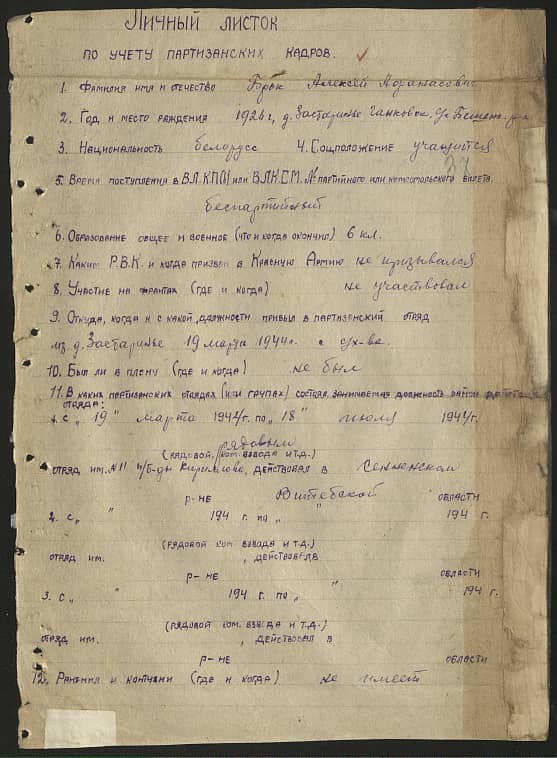 Личный листок
по учету партизанских кадров.
1. Фамилия имя и отечество Брык Алексей Афанасович
2. Год и место раждения 1926 г, д. Застаринье
3. Национальность белорусс 4. Соцположение учащийся
5. Время поступления в В.Л.КП(б) или В.Л.К.С.М. № партийного или комсомольского билета.
беспартийный
6. Образование общее и военное (что и когда окончил) 6 кл.
7. Каким Р.В.К. и когда призван в Красную Армию не призывался
8. Участие на франтах (где и когда) не участвовал
9. Откуда, когда и с какой должности прибыл в партизенский отряд
из д. Застаринье 19 марта 1944 г. с с/х-ва
10. Был ли в плену (где и когда) не был
11. В каких партизанских отрядах (или групах) состоял, занимаемая должность район действия
отряда:
1. с „ 19 " марта 1944 г. по „ 18 " июля 1944 г.
рядовым
(рядовой, ком. взвода и т.д.)
отряд им. №11 п/б-ды Кирилова, действовал в Сенненском
р-не Витебской области
2. с „ " 194 г. по „ " 194 г.
(рядовой ком. взвода и т.д.)
отряд им. , действовал в
р-не области
3. с „ " 194 г. по „ " 194 г.
(рядовой ком. взвода и т.д.)
отряд им. , действовал в
р-не области
12. Ранения и контузии (где и когда) не имеет